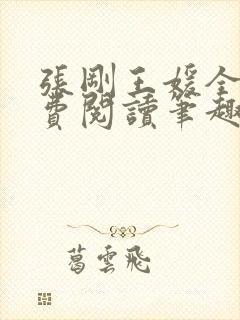 張剛王媛全
費閱讀筆趣
葛雲飛